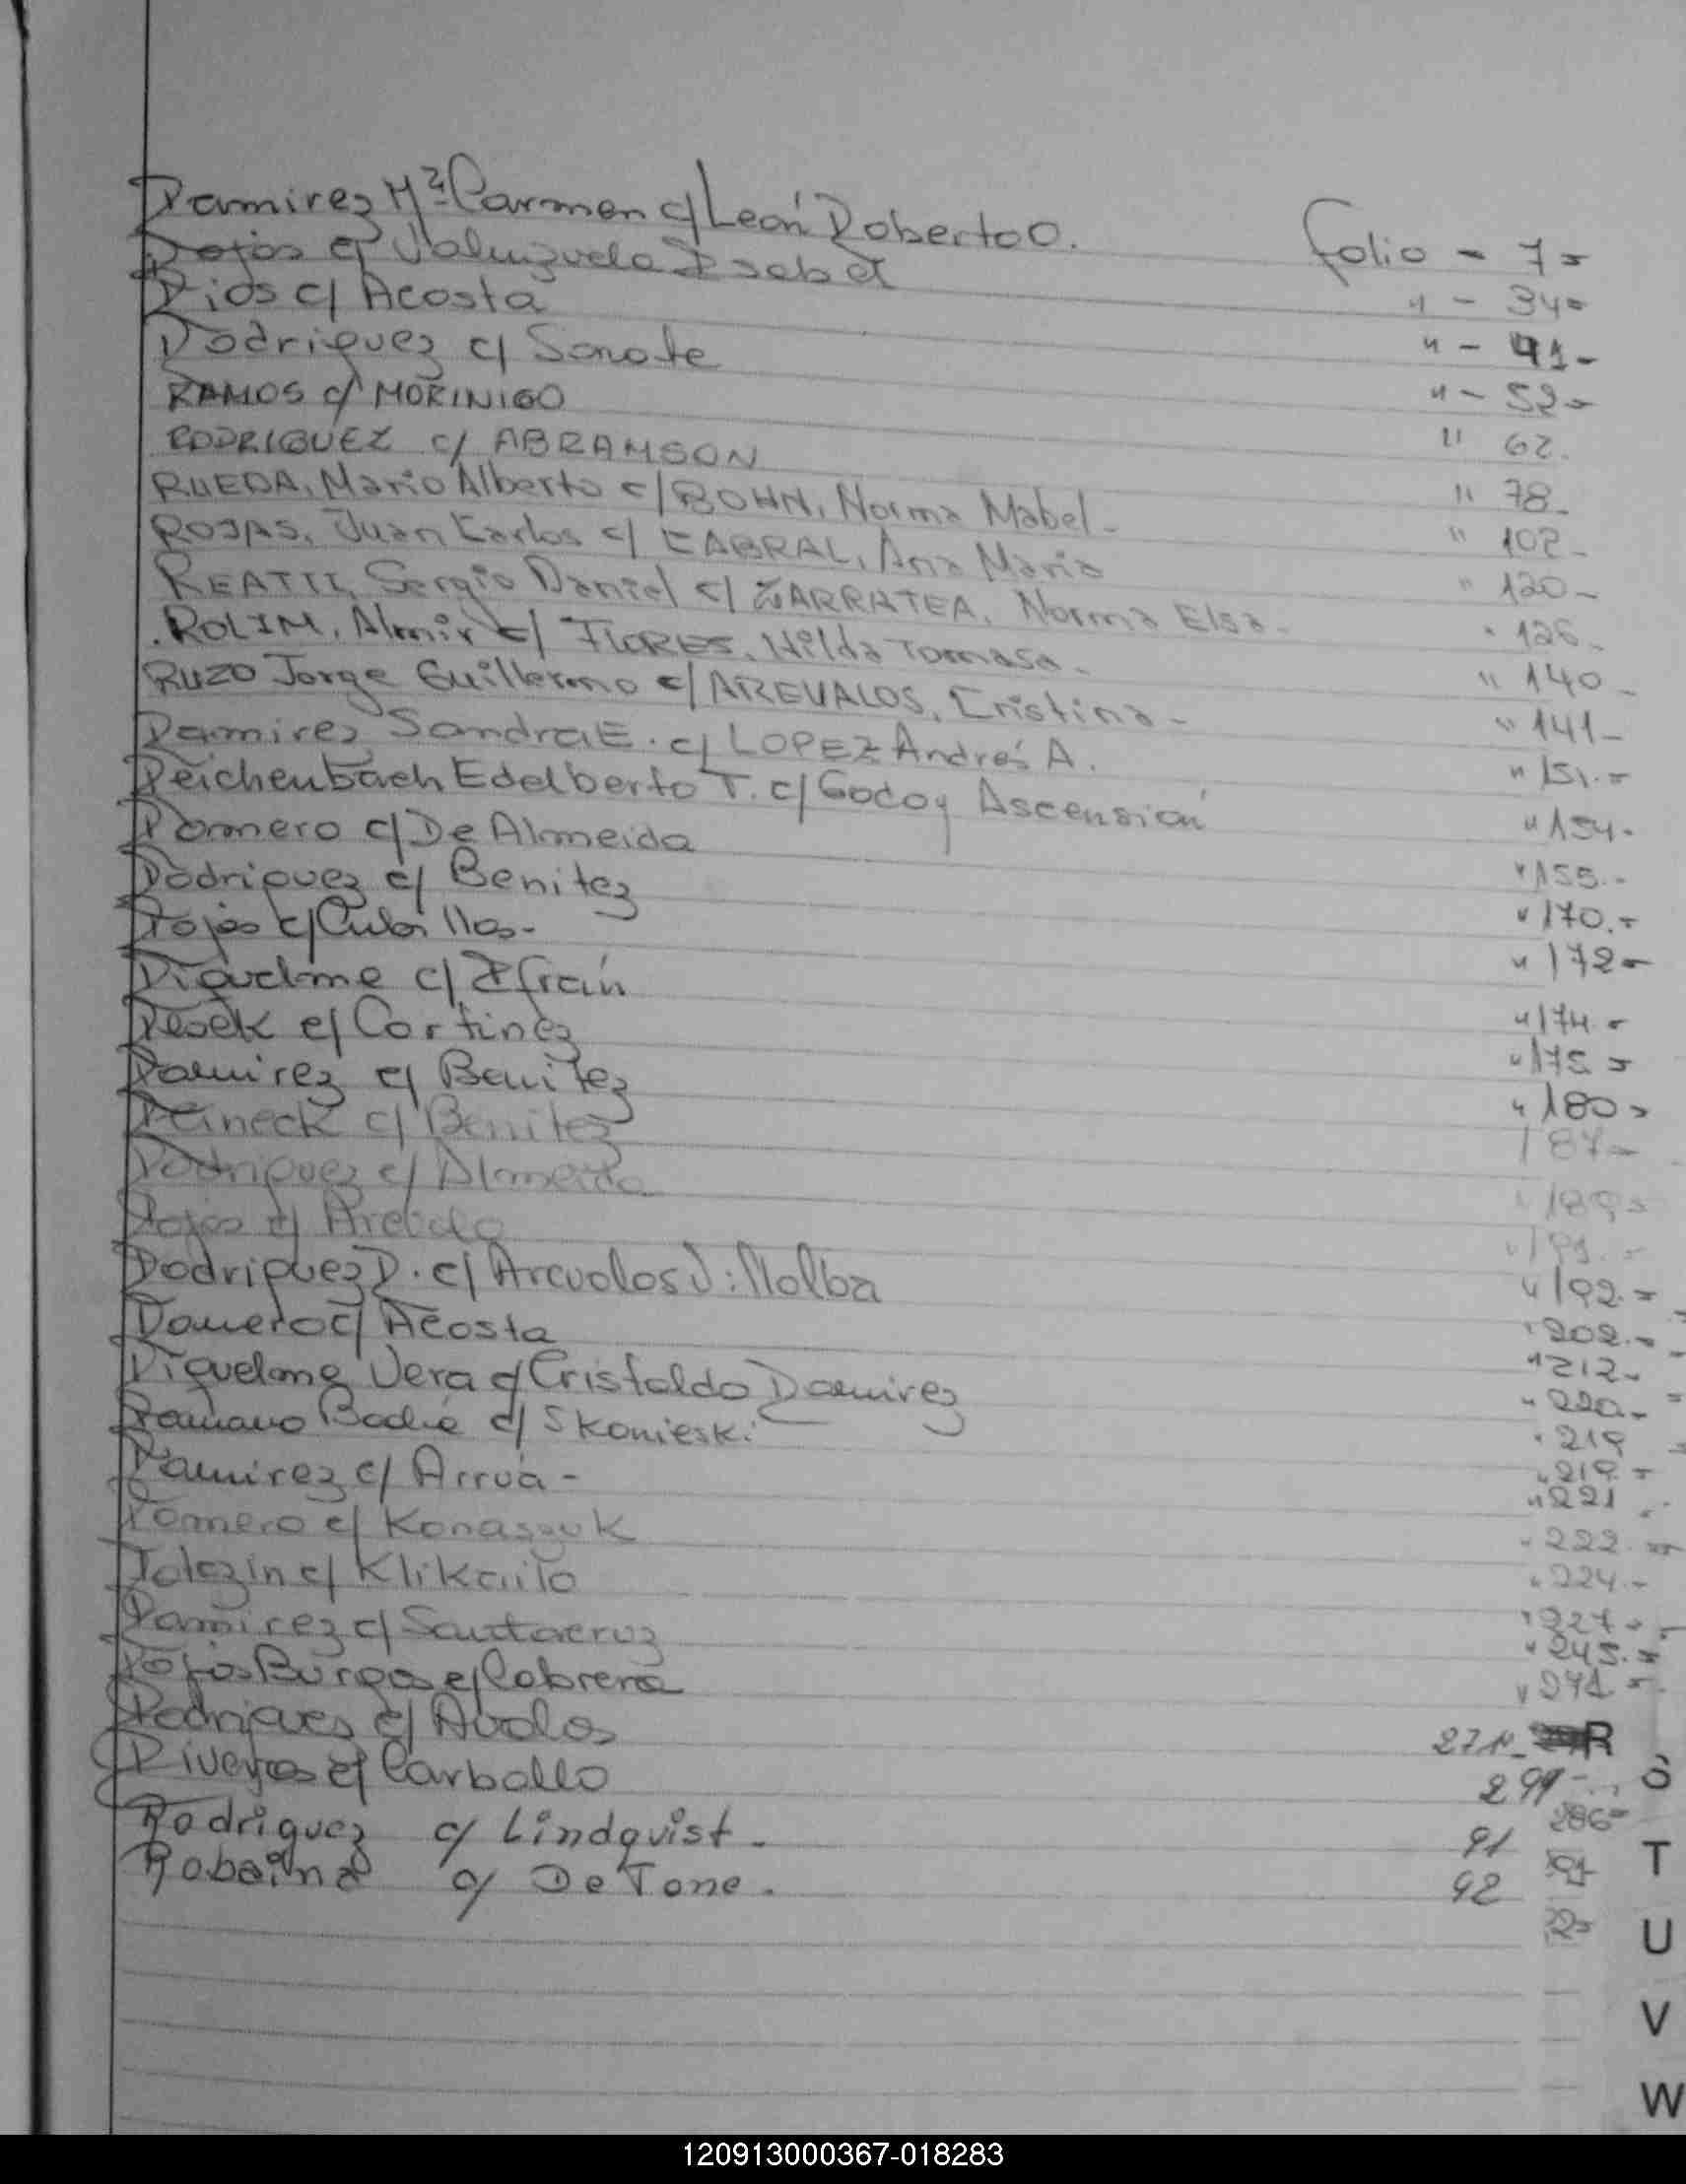 Ramirez Mª Carmen c/ León Roberto O. Folio - 7=
Rojas c/ Valenzuela Isabel " - 34=
Rios c/ Acosta " - 41-
Rodriguez c/ Sonate " - 52-
RAMOS c/ MORINIGO " 62.
RODRIGUEZ c/ ABRAMSON " 78-
RUEDA, Mario Alberto c/ BOHN, Norma Mabel- " 102-
ROJAS, Juan Carlos c/ CABRAL, Ana Maria " 120-
REATTI, Sergio Daniel c/ ZARRATEA, Norma Elsa- " 126-
.ROLIM, Almir c/ FLORES, Hilda Tomasa- " 140-
RUZO Jorge Guillermo c/ AREVALOS, Cristina- " 141-
Ramirez Sandra E. c/ LOPEZ Andrés A. " 151.=
Reichenbach Edelberto T. c/ Godoy Ascensión " 154-
Romero c/ De Almeida " 155.-
Rodriguez c/ Benitez " 170.-
Rojas c/ Cubillas- " 172-
Riquelme c/ Efraín " 174.-
c/ Cortinez " 175 =
Ramirez c/ Benitez " 180-
Reineck c/ Benitez 187-
Rodriguez c/ Almeida " 189-
Rojas c/ Arebalo " 191.-
Rodriguez R. c/ Arevalos J. Nolba " 192.=
Romero c/ Acosta " 202.-
Riquelme Vera c/ Cristaldo Ramirez " 212-
Romano Badie c/ Skonieski " 220-
Ramirez c/ Arrúa - " 219
" 219 -
Romero c/ Konaszuk " 221
c/ Klikailo " 222
Ramirez c/ Santacruz " 224.-
Rojas Burgos c/ Cabrera " 227-
" 245.=
Rodrigues c/ Avalos " 271-
Riveros c/ Carballo 271- R
299- S
Rodriguez c/ Lindquist. 91 286= T
Robaina c/ De Tone. 92 91-
92- U
V
W
120913000367-018283